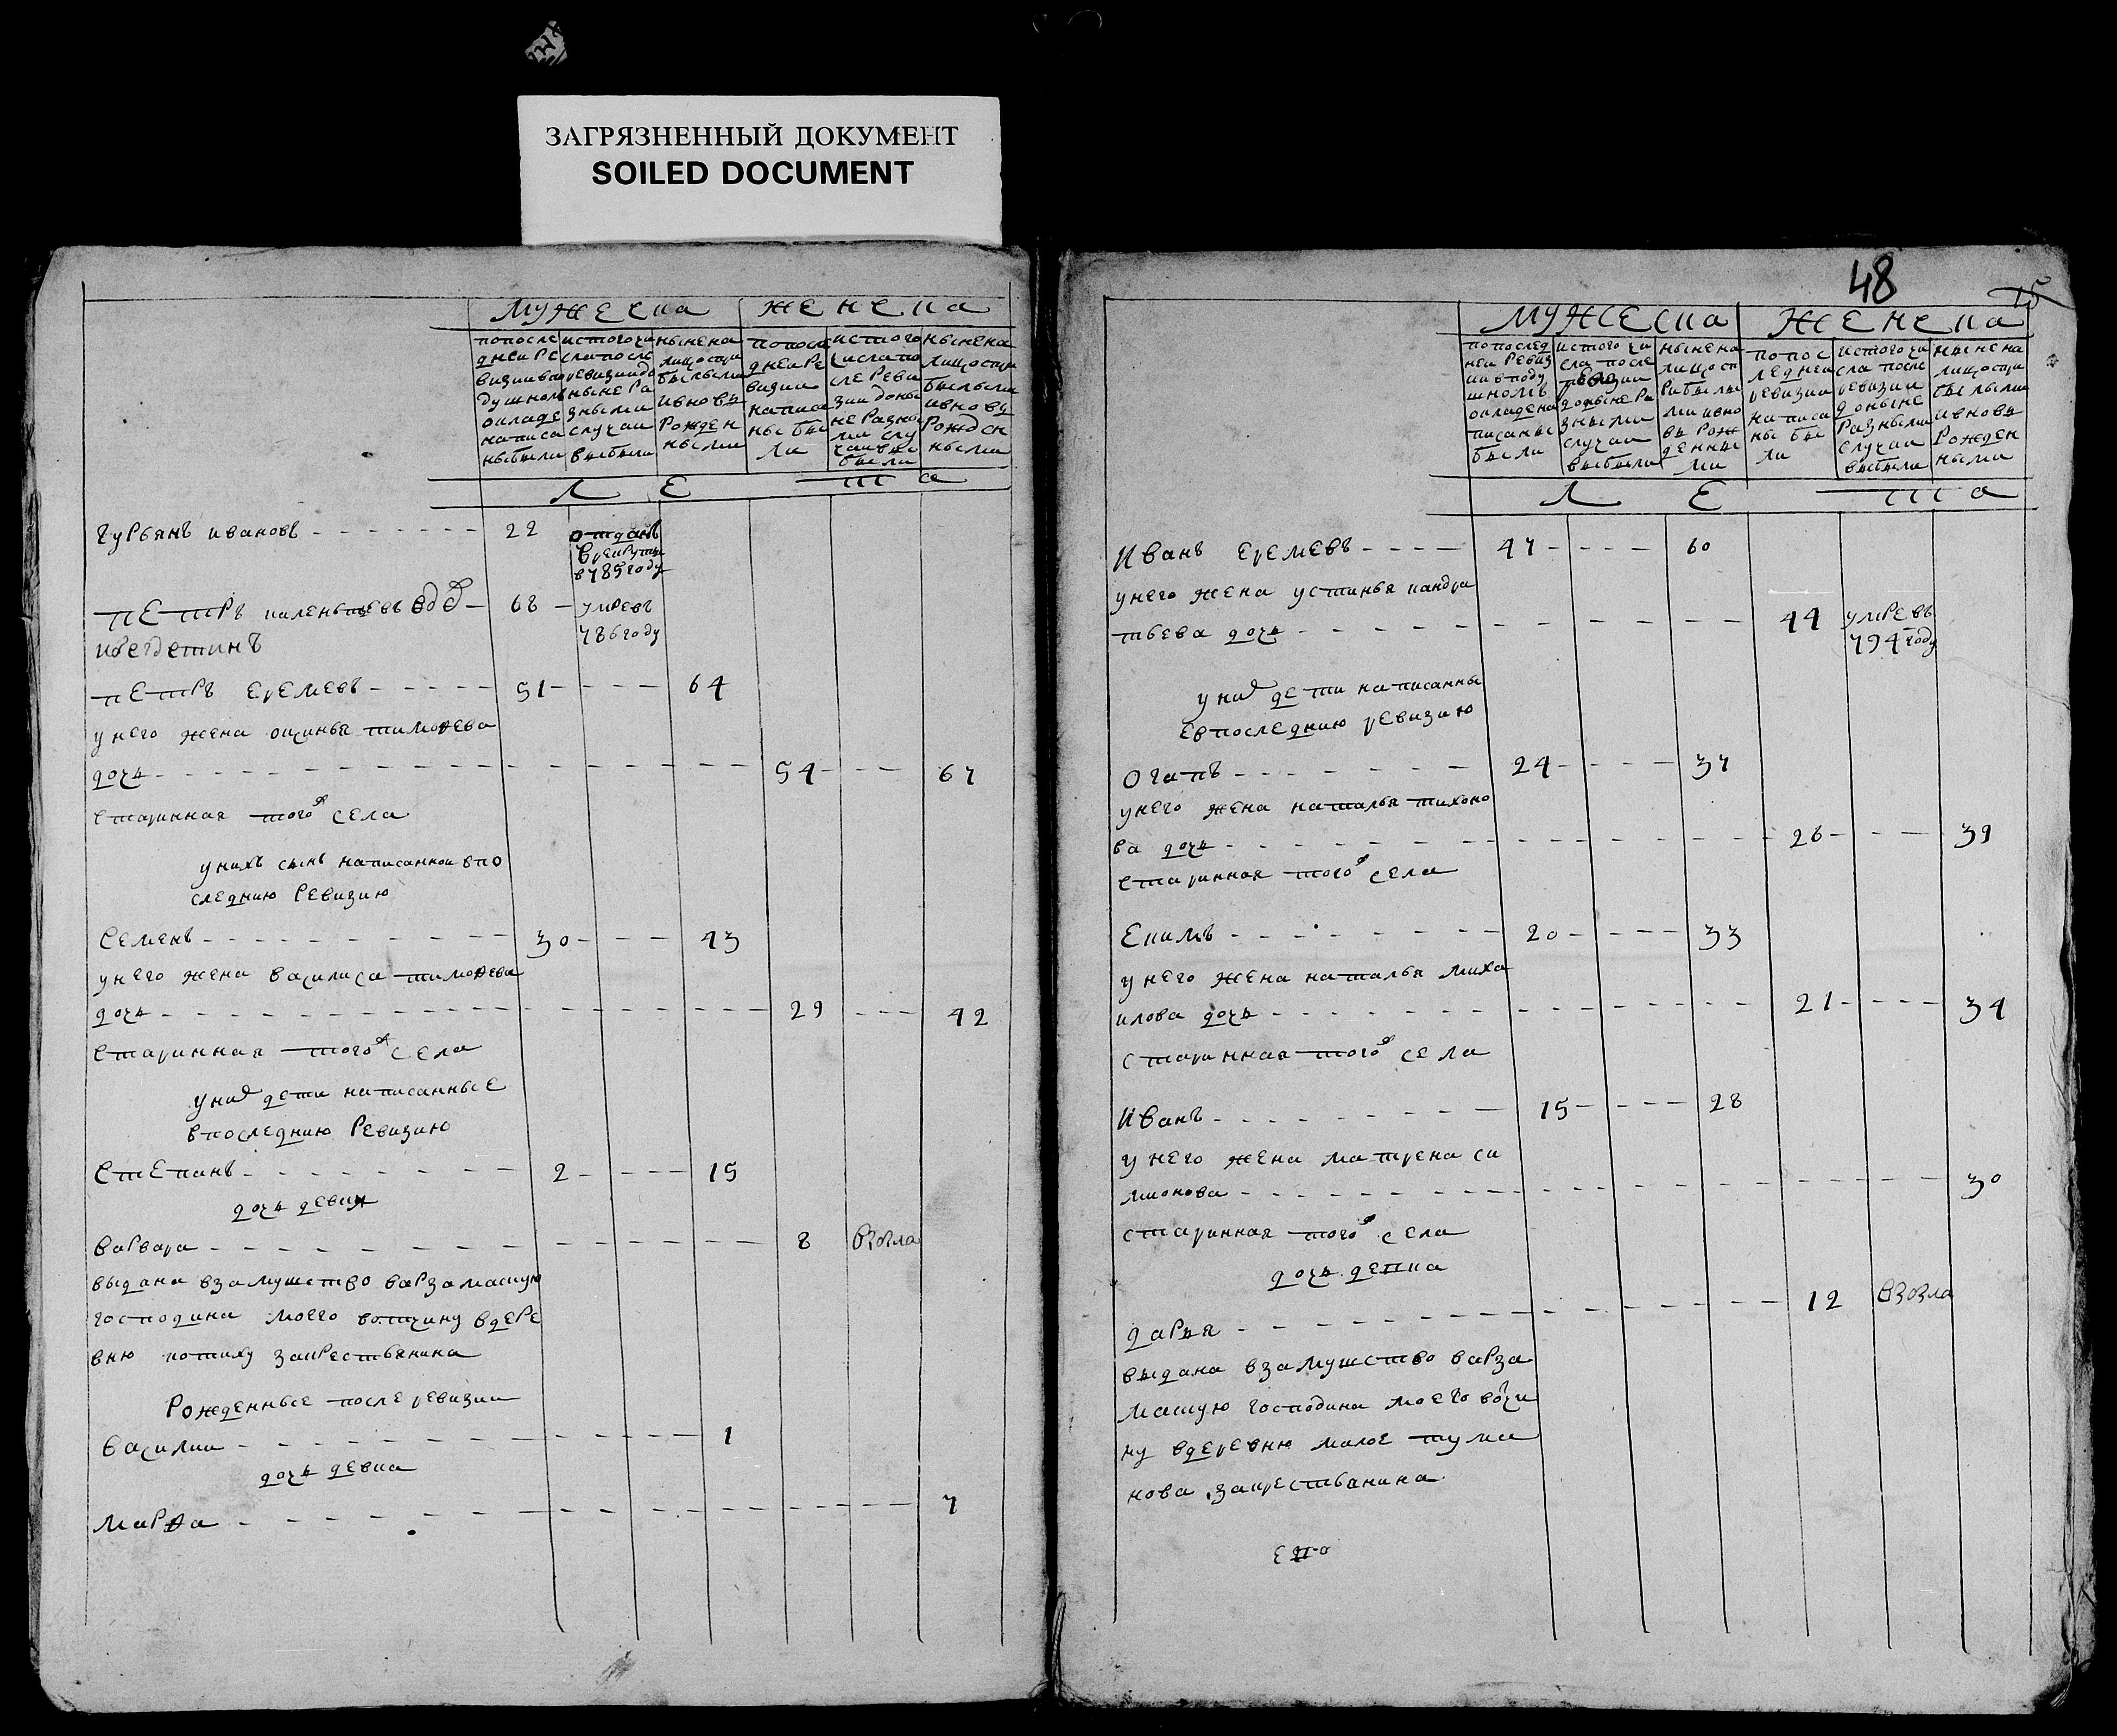 ЗАГРЯЗНЕННЫЙ ДОКУМЕНТ
SOILED DOCUMENT
мужеска
женска
попосле
дней ре
визии впо
душном
окладе
написа
ны были
истого чи
сла после
ревизии до
ныне ра
зными
случаи
выбыли
ныне на
лицо с при
былыми
и новы
рожден
ными
попосле
дней ре
визии
написа
ны бы
ли
истого
числа по
сле реви
зии доны
не разны
ми слу
чаи вы
были
ныне на
лицо с при
былыми
и нову
рожден
ными
ле та
гурьянъ ивановъ 22 отданъ
в рекруты
в 785 году
петръ 68 умре въ
786 году
петръ еремевъ 51 64
у него жена аксинья тимофева
дочь 54 67
старинная тогож села
у нихъ сынъ написанной в по
следнию ревизию
семенъ 30 43
у него жена василиса тимофева
дочь 29 42
старинная тогож села
у них дети написанные
в последнию ревизию
степанъ 2 15
дочь девка
варвара 8 взросла
выдана взамужство варзамаскую
господина моего вотчину в дере
вню потиху за крестьянина
рожденные после ревизии
василии 1
дочь девка
марфа 7
48
15
мужеска
женска
попослед
ней ревиз
ии в поду
шномъ
окладе на
писаны
были
истого чи
сла после
ревизии
до ныне ра
зными
случаи
выбыли
ныне на
лицо сп
рибылы
ми и но
вы рож
денны
ми
попос
ледней
ревизии
написа
ны бы
ли
истого чи
сла после
ревизии
доныне
разными
случаи
выбыли
ныне на
лицо с при
былыми
и новы
рожден
ными
ле та
иванъ еремевъ 47 60
у него жена устинья кандра
тьева дочь 44 умре въ
794 году
у них дети написанны
е в последнию ревизию
огапъ 24 37
у него жена наталья тихоно
ва дочь 26 39
старинная тогож села
екимъ 20 33
у него жена наталья миха
илова дочь 21 34
старинная тогож села
иванъ 15 28
у него жена матрена си
мионова 30
старинная тогож села
дочь девка
дарья 12 взросла
выдана взамужство варза
маскую господина моего вотчи
ну в деревню малое тума
нова за крестьянина